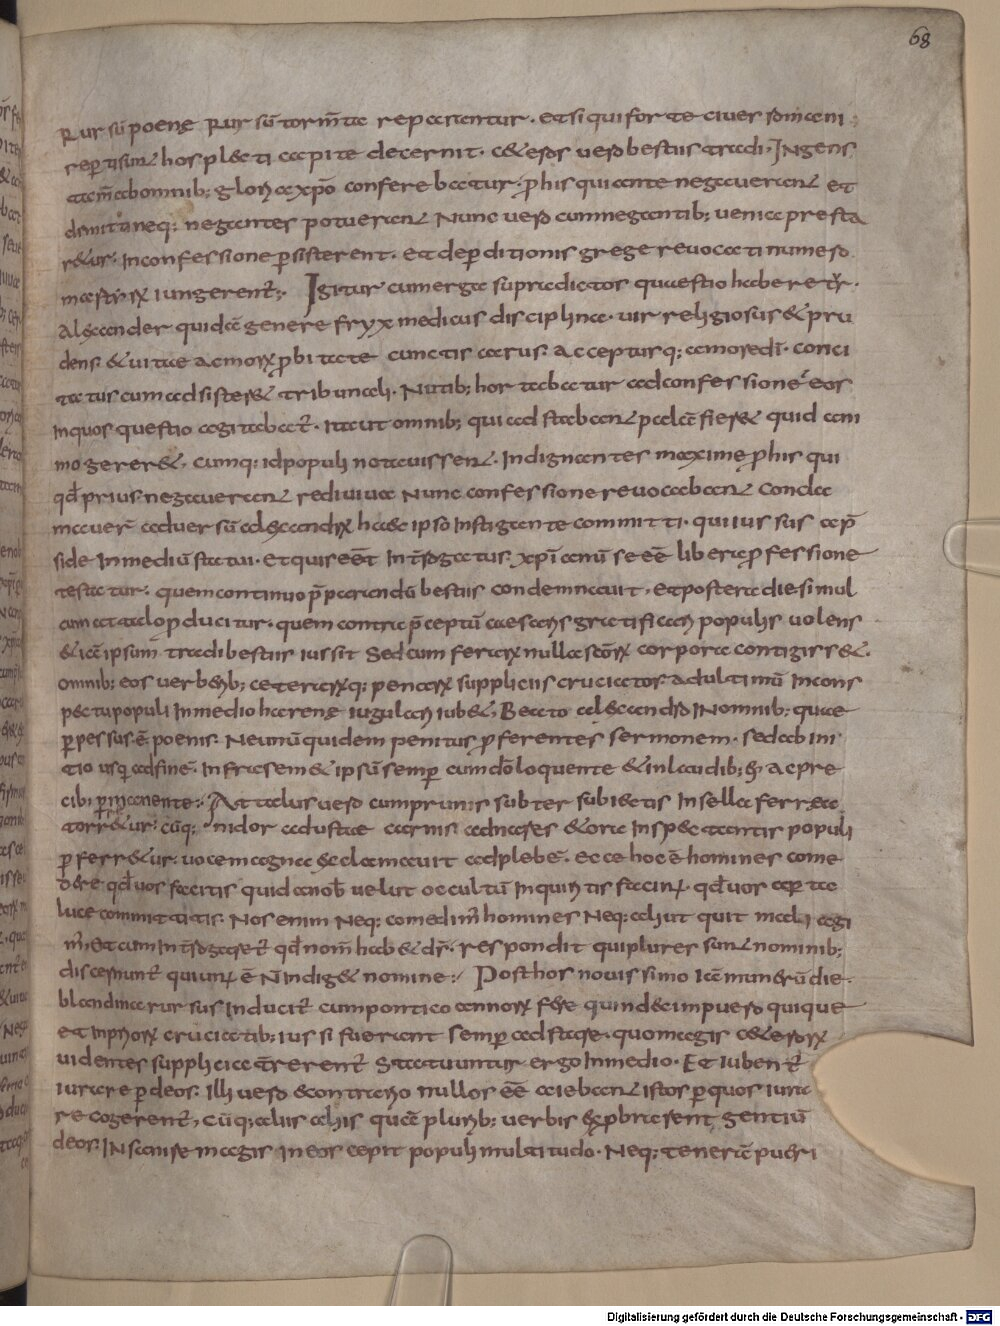 68
Rursū poene Rursū torm̄ta repararentur. etsi qui forte ciues romani
reperti sunt hos plecti capite decernit. ceteros uero bestiis tradi. INgens
tam̄ ab omnib; gloria xp̄o conferebatur. p his qui ante negauerant et
denitaneq; negantes potuerant Nunc uero cum negantib; uenia presta
retur. In confessione persisterent. et de perditionis grege reuocati numero
martyrū iungerent̄;. Igitur cum erga supradictos quaestio haberet̄.
Alexander quidā genere fryx medicus disciplina. uir religiosus & pru
dens & uitae ac morū probitate cunctis carus. Accepturq; a moredī. conci
tatus cum adsisteret tribunali. Nutib; hortabatur ad confessionē eos
In quos questio agitabat̄. Ita ut omnib; qui adstabant palā fieret quid ani
mo gereret. cumq; id populi notauissent. Indignantes maxime p his qui
qd̄ prius negauerant rediuiua Nunc confessione reuocabant Concla
mauer̄ aduersū alexandrū haec ipso Instigante committi. qui iussus a p̄
side In mediū statui. et quis eēt Int̄rogatus. xp̄ianū se eē libera professione
testatur. quem continuo p̄parandū bestiis condemnauit. et postera die simul
cum attalo producitur. quem contra p̄ceptū caesaris gratificari populis uolens
& iā ipsum tradi bestiis iussit Sed cum ferarū nulla scōrū corpora contigisset.
omnib; eos uerberib; ceterarūq; penarū suppliciis cruciatos ad ultimū In cons
pectu populi In medio harene iugulari iubet. Beato alexandro IN omnib; quae
perpessus ē poenis. Ne unū quidem penitus proferentes sermonem. sed ab ini
tio usq; ad finē. Infra sem& ipsū semper cum dō loquente & in laudib; ei ac pre
cibus permanente;. Attalus uero cum prunis subter subiectis In sella ferrea
torreretur. cūq; nidor adustae carnis ad nares & ora Inspectantis populi
perferretur. uoce magna exclamauit ad plebē. ecce hoc ē homines come
dere qd̄ uos facitis quid a nob̄ uelut occultū Inquiritis facinus. qd̄ uos aperta
luce committitis. Nos enim Neq; comedim̄ homines Neq; aliut quit mali agi
m̄. et cum Int̄rogaret̄ qd̄ nom̄ habet ds̄. respondit qui plures sunt nominib;
discernunt̄ qui unus ē N̄ Indiget nomine;. Post hos nouissimo iā munerū die.
blandina rursus Inducit̄ cum pontico annorū fere quindecim puero quique
et In priorū cruciatib; iussi fuerant semper adstare. quo magis ceterorū
uidentes supplicia t̄rerent̄ Statuuntur ergo In medio. Et iubent̄
iurare per deos. Illi uero & contrario nullos eē aiebant istos per quos iura
re cogerent̄, cūq; aliis aliis quā plurib; uerbis exprobrarent gentiū
deos. INsanire magis In eos cepit populi multitudo. Neq; tenerā pueri
Digitalisierung gefördert durch die Deutsche Forschungsgemeinschaft - DFG